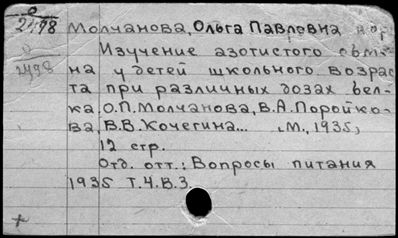 О
2498 Молчанова, Ольга Павловна
Изучение азотистого обме-
на у детей школьного возрас-
2498
та при различных дозах бел-
ка. О.П.Молчанова, В.А.Поройко-
ва, В.В.Кочегина... М., 1935,
12 стр.
Отд. отт.: Вопросы питания
1935 Т.4.В.3.